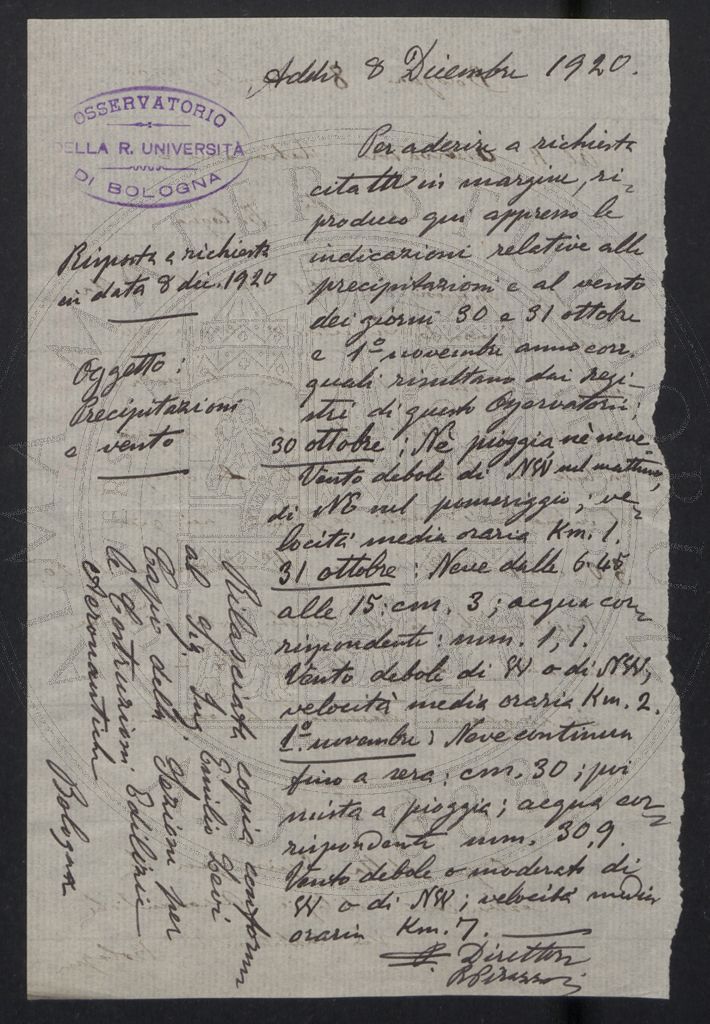 Addì 8 Dicembre 1920.
OSSERVATORIO
DELLA R. UNIVERSITÀ
DI BOLOGNA
Risposta a richiesta
in data 8 dic. 1920
Oggetto:
Precipitazioni
e vento
Per aderire a richiesta
citata in margine, ri-
produco qui appresso le
indicazioni relative alle
precipitazioni e al vento
dei giorni 30 e 31 ottobre
e 1º novembre anno corr.
quali risultano dai regi-
stri di questo Osservatorio;
30 ottobre; Nè pioggia nè neve
Vento debole di NW nel mattino,
di NE nel pomeriggio; ve-
locità media oraria Km. 1.
31 ottobre: Neve dalle 6.45
alle 15: cm. 3; acqua cor-
rispondente: mm. 1,1.
Vento debole di W o di NW,
velocità media oraria Km. 2.
1º novembre: Neve continua
fino a sera: cm. 30; poi
mista a pioggia; acqua cor-
rispondente mm. 30,9.
Vento debole o moderato di
W o di NW; velocità media
oraria Km. 7.
Direttore
Rilasciata copia conforme
al Sig. Ing. Emilio Levi
Capo della Sezione per
le Costruzioni Edilizie
Aeronautiche
Bologna